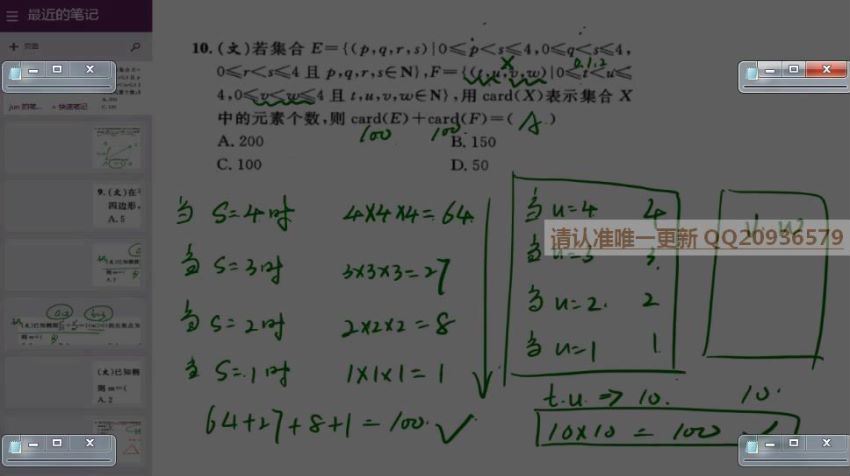 最近的笔记
页面
jun 的笔... » 快速笔记
10.(文)若集合 E={(p,q,r,s)|0≤p<s≤4,0≤q<s≤4,
0≤r<s≤4 且 p,q,r,s∈N},F={(t,u,v,w)|0≤t<u≤
4,0≤v<w≤4 且 t,u,v,w∈N},用 card(X)表示集合 X
中的元素个数,则 card(E)+card(F)=( A )
X
0.1.2
100 100
A. 200 B. 150
C. 100 D. 50
当 S=4时 4×4×4=64
当 S=3时 3×3×3=27
当 S=2时 2×2×2=8
当 S=1时 1×1×1=1
64+27+8+1=100
当 u=4 4
当 u=3 3
当 u=2 2
当 u=1 1
t.u ⇒ 10. 10.
10×10 = 100
请认准唯一更新 QQ20936579
9.(文)在
四边形,
A. 5
(文)已知椭
则 m=(
A. 2